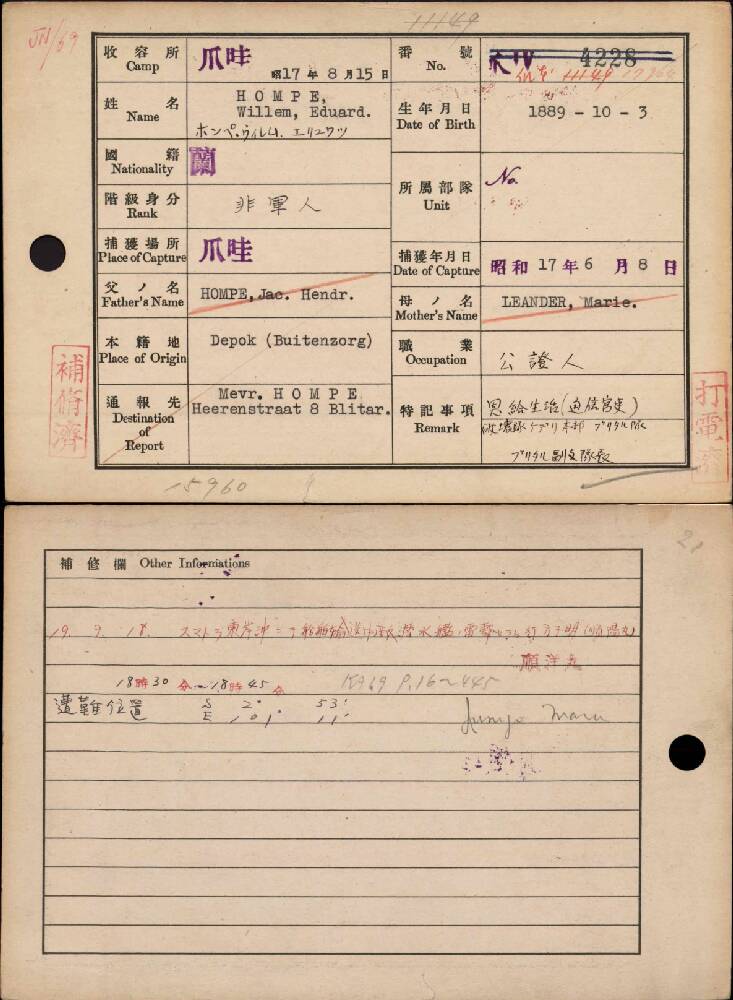 11149
収容所
Camp
爪哇
昭17年8月15日
番號
No.
4228
11149
姓名
Name
HOMPE,
Willem, Eduard.
生年月日
Date of Birth
1889 - 10 - 3
國籍
Nationality
蘭
階級身分
Rank
非軍人
所屬部隊
Unit
No.
捕獲場所
Place of Capture
爪哇
捕獲年月日
Date of Capture
昭和17年6月8日
父ノ名
Father's Name
HOMPE, Jac. Hendr.
母ノ名
Mother's Name
LEANDER, Marie.
本籍地
Place of Origin
Depok (Buitenzorg)
職業
Occupation
公證人
通報先
Destination
of
Report
Mevr. HOMPE
Heerenstraat 8 Blitar.
特記事項
Remark
恩給生活
補脩濟
打電濟
15960
21
補修欄 Other Informations
19. 9. 18. スマトラ東岸沖ニテ船舶輸送中 潜水艦ノ雷撃 行方不明
順洋丸
18時30分～18時45分
KA69 P.16~445
遭難位置
S 2° 53'
E 101° 11'
Junyo Maru